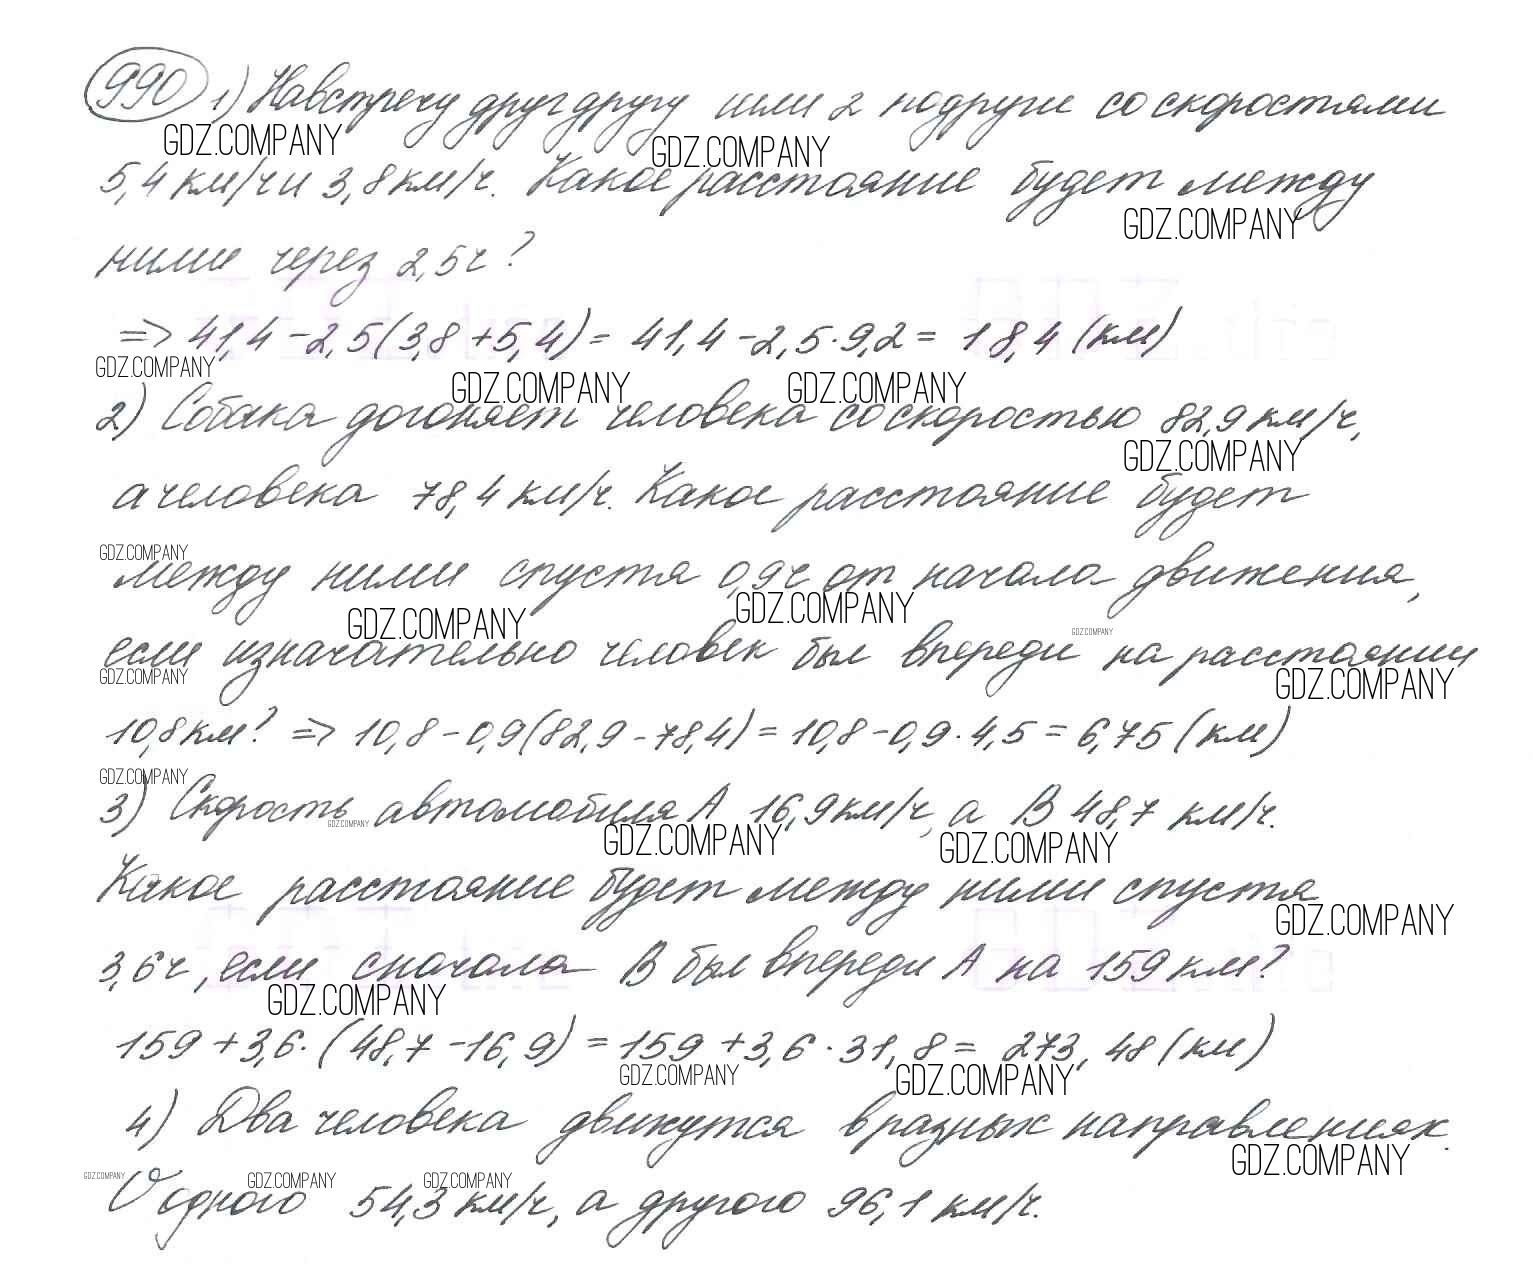 990 1) Навстречу друг другу шли 2 подруги со скоростями
GDZ.COMPANY GDZ.COMPANY
5,4 км/ч и 3,8 км/ч. Какое расстояние будет между
GDZ.COMPANY
ними через 2,5 ч?
=> 41,4 - 2,5(3,8 + 5,4) = 41,4 - 2,5 · 9,2 = 18,4 (км)
GDZ.COMPANY GDZ.COMPANY GDZ.COMPANY
2) Собака догоняет человека со скоростью 82,9 км/ч,
GDZ.COMPANY
а человека 78,4 км/ч. Какое расстояние будет
GDZ.COMPANY
между ними спустя 0,9 ч от начала движения,
GDZ.COMPANY GDZ.COMPANY GDZ.COMPANY
если изначательно человек был впереди на расстоянии
GDZ.COMPANY GDZ.COMPANY
10,8 км? => 10,8 - 0,9(82,9 - 78,4) = 10,8 - 0,9 · 4,5 = 6,75 (км)
GDZ.COMPANY
3) Скорость автомобиля А 16,9 км/ч, а В 48,7 км/ч.
GDZ.COMPANY GDZ.COMPANY GDZ.COMPANY
Какое расстояние будет между ними спустя
GDZ.COMPANY
3,6 ч, если сначала В был впереди А на 159 км?
GDZ.COMPANY
159 + 3,6 · (48,7 - 16,9) = 159 + 3,6 · 31,8 = 273,48 (км)
GDZ.COMPANY GDZ.COMPANY
4) Два человека движутся в разных направлениях.
GDZ.COMPANY
GDZ.COMPANY GDZ.COMPANY GDZ.COMPANY
У одного 54,3 км/ч, а другого 96,1 км/ч.